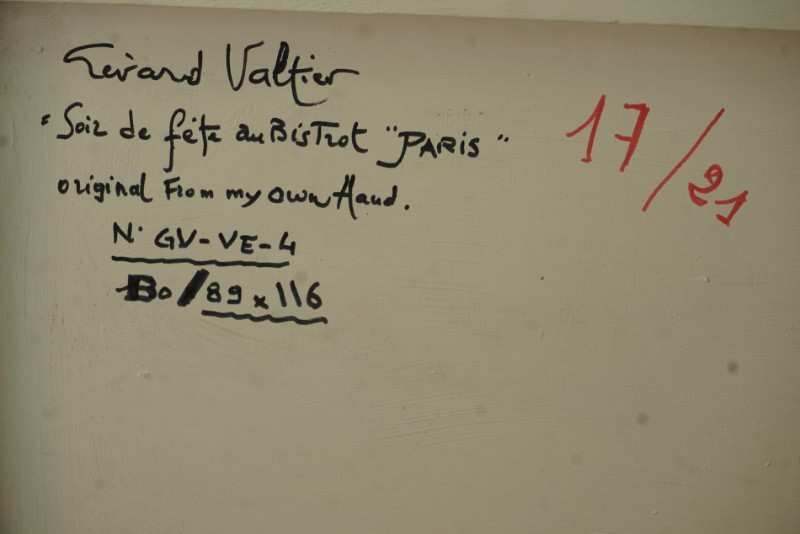 Gérard Valtier
"Soir de fête au BisTrot "PARIS"
original From my own Hand.
N° GV-VE-4
80/89 x 116
17/21